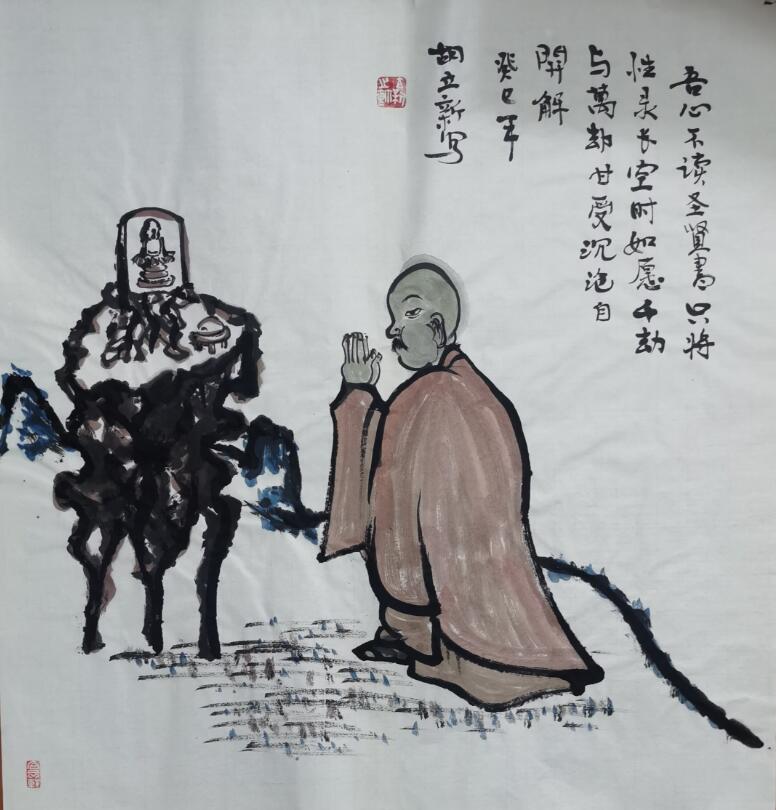 吾心不读圣贤書只将
性灵长空时如愿千劫
与萬劫甘受沉沦自
開解
癸巳年
胡立新写